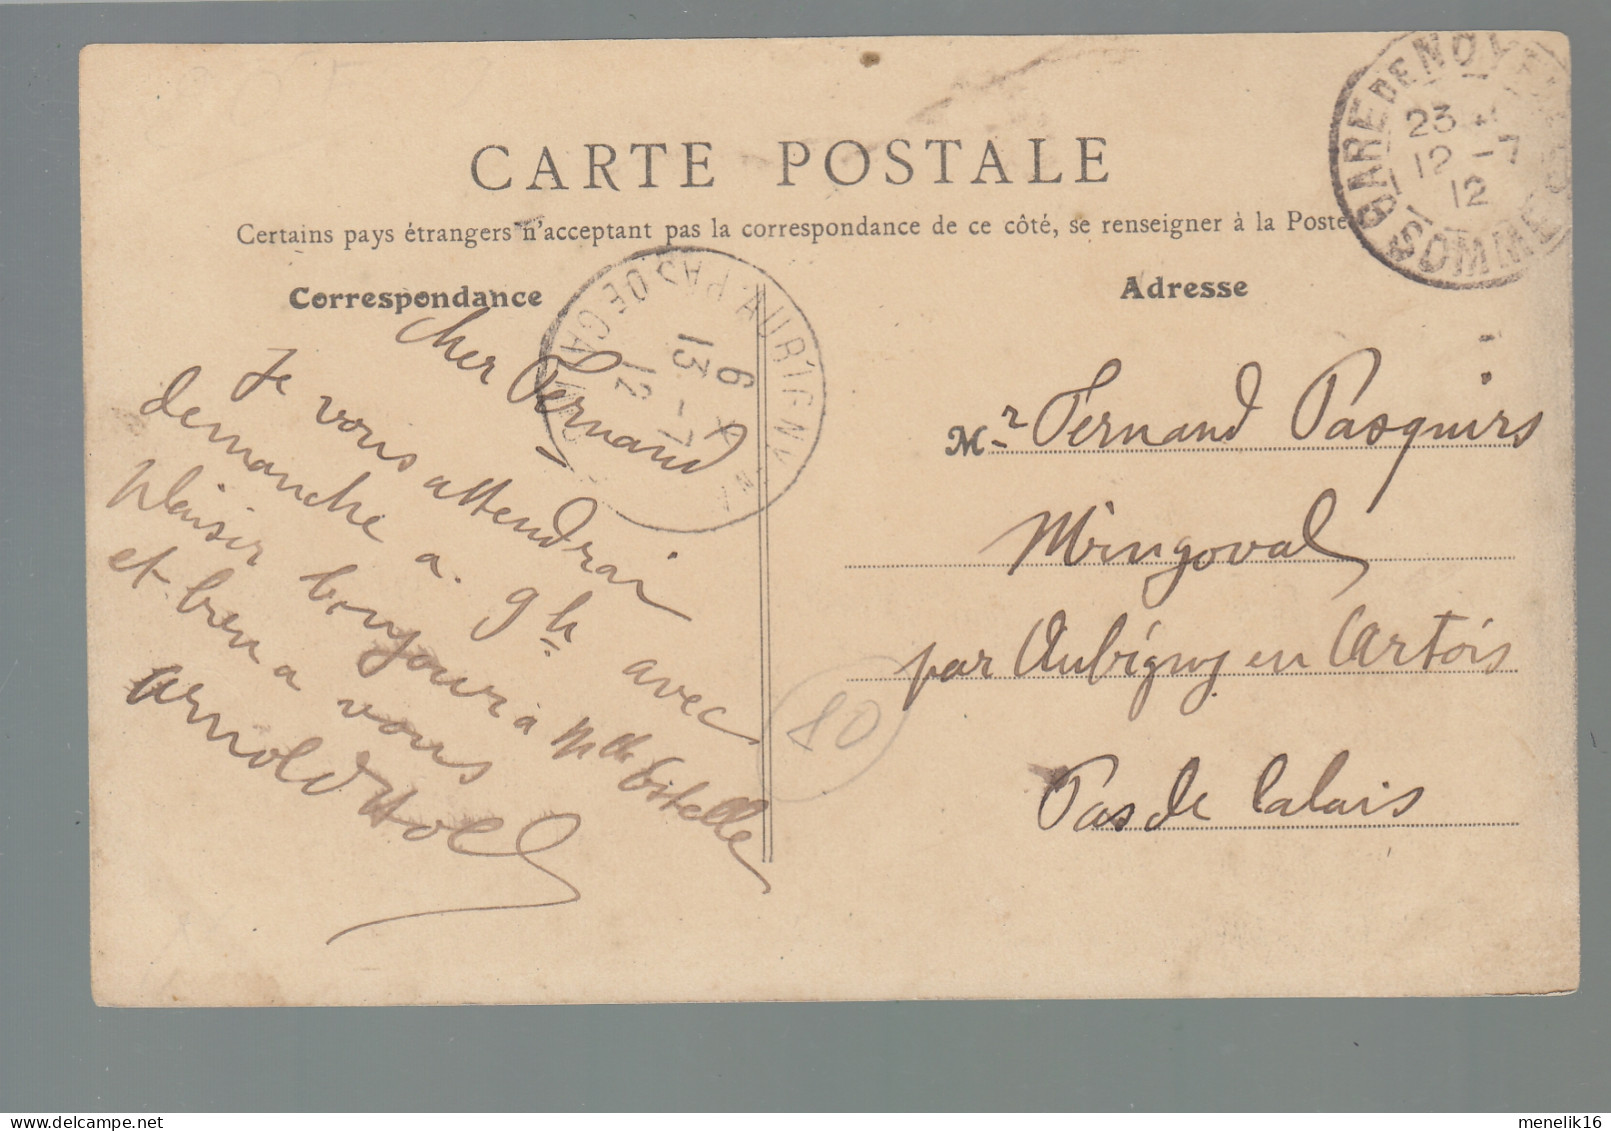 CARTE POSTALE
Certains pays étrangers n'acceptant pas la correspondance de ce côté, se renseigner à la Poste
Correspondance
Adresse
GARE DE NOYELLES
23
12 -7
12
SOMME
AUBIGNY
PAS DE CALAIS
6
13 -7
12
Cher Fernand
Je vous attendrai
demanche a 9h avec
plaisir bonjour a Mlle Estelle
et bien a vous
Arnold
Mr Fernand Pasquirs
Mingoval
par Aubigny en Artois
Pas de Calais
80
menelik16